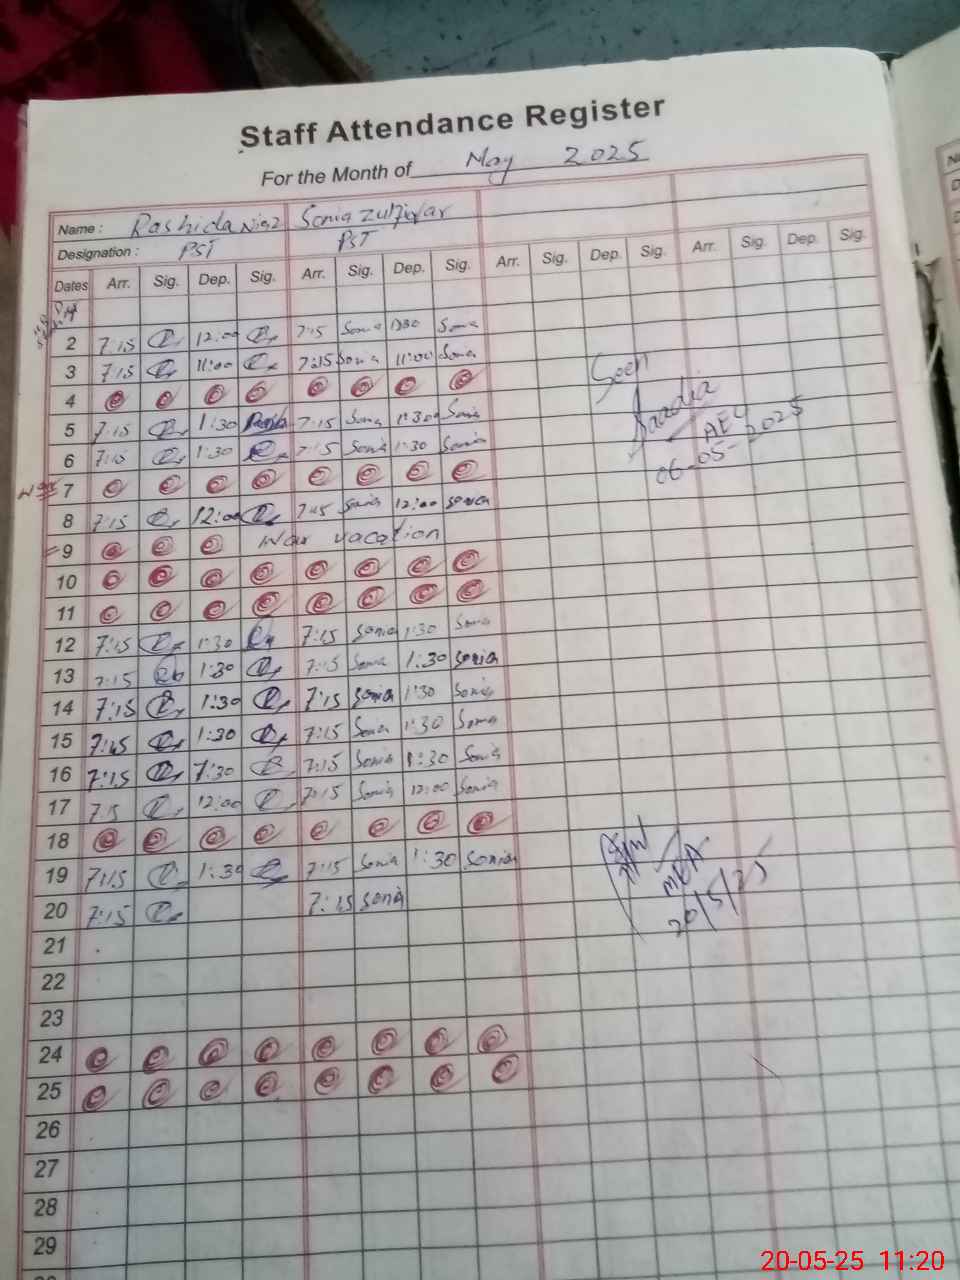 Staff Attendance Register
For the Month of May 2025
Name : Rashida Niaz Sonia Zulfiqar
Designation : PST PST
Dates Arr. Sig. Dep. Sig. Arr. Sig. Dep. Sig. Arr. Sig. Dep. Sig. Arr. Sig. Dep. Sig.
2 7:15 12:00 7:15 Sonia Sonia
3 7:15 11:00 7:15 Sonia 11:00 Sonia
4
5 7:15 1:30 7:15 Sonia 1:30 Sonia
6 7:15 1:30 7:15 Sonia 1:30 Sonia
7
8 7:15 12:00 7:15 Sonia 12:00 Sonia
9 War vacation
10
11
12 7:15 1:30 7:15 Sonia 1:30 Sonia
13 7:15 1:30 7:15 Sonia 1:30 Sonia
14 7:15 1:30 7:15 Sonia 1:30 Sonia
15 7:15 1:30 7:15 Sonia 1:30 Sonia
16 7:15 7:15 Sonia 1:30 Sonia
17 7:15 12:00 7:15 Sonia 12:00 Sonia
18
19 7:15 1:30 7:15 Sonia 1:30 Sonia
20 7:15 7:15 Sonia
21
22
23
24
25
26
27
28
29
Seen
Saadia
AEO
06-05-2025
MEA
20/5/25
20-05-25 11:20